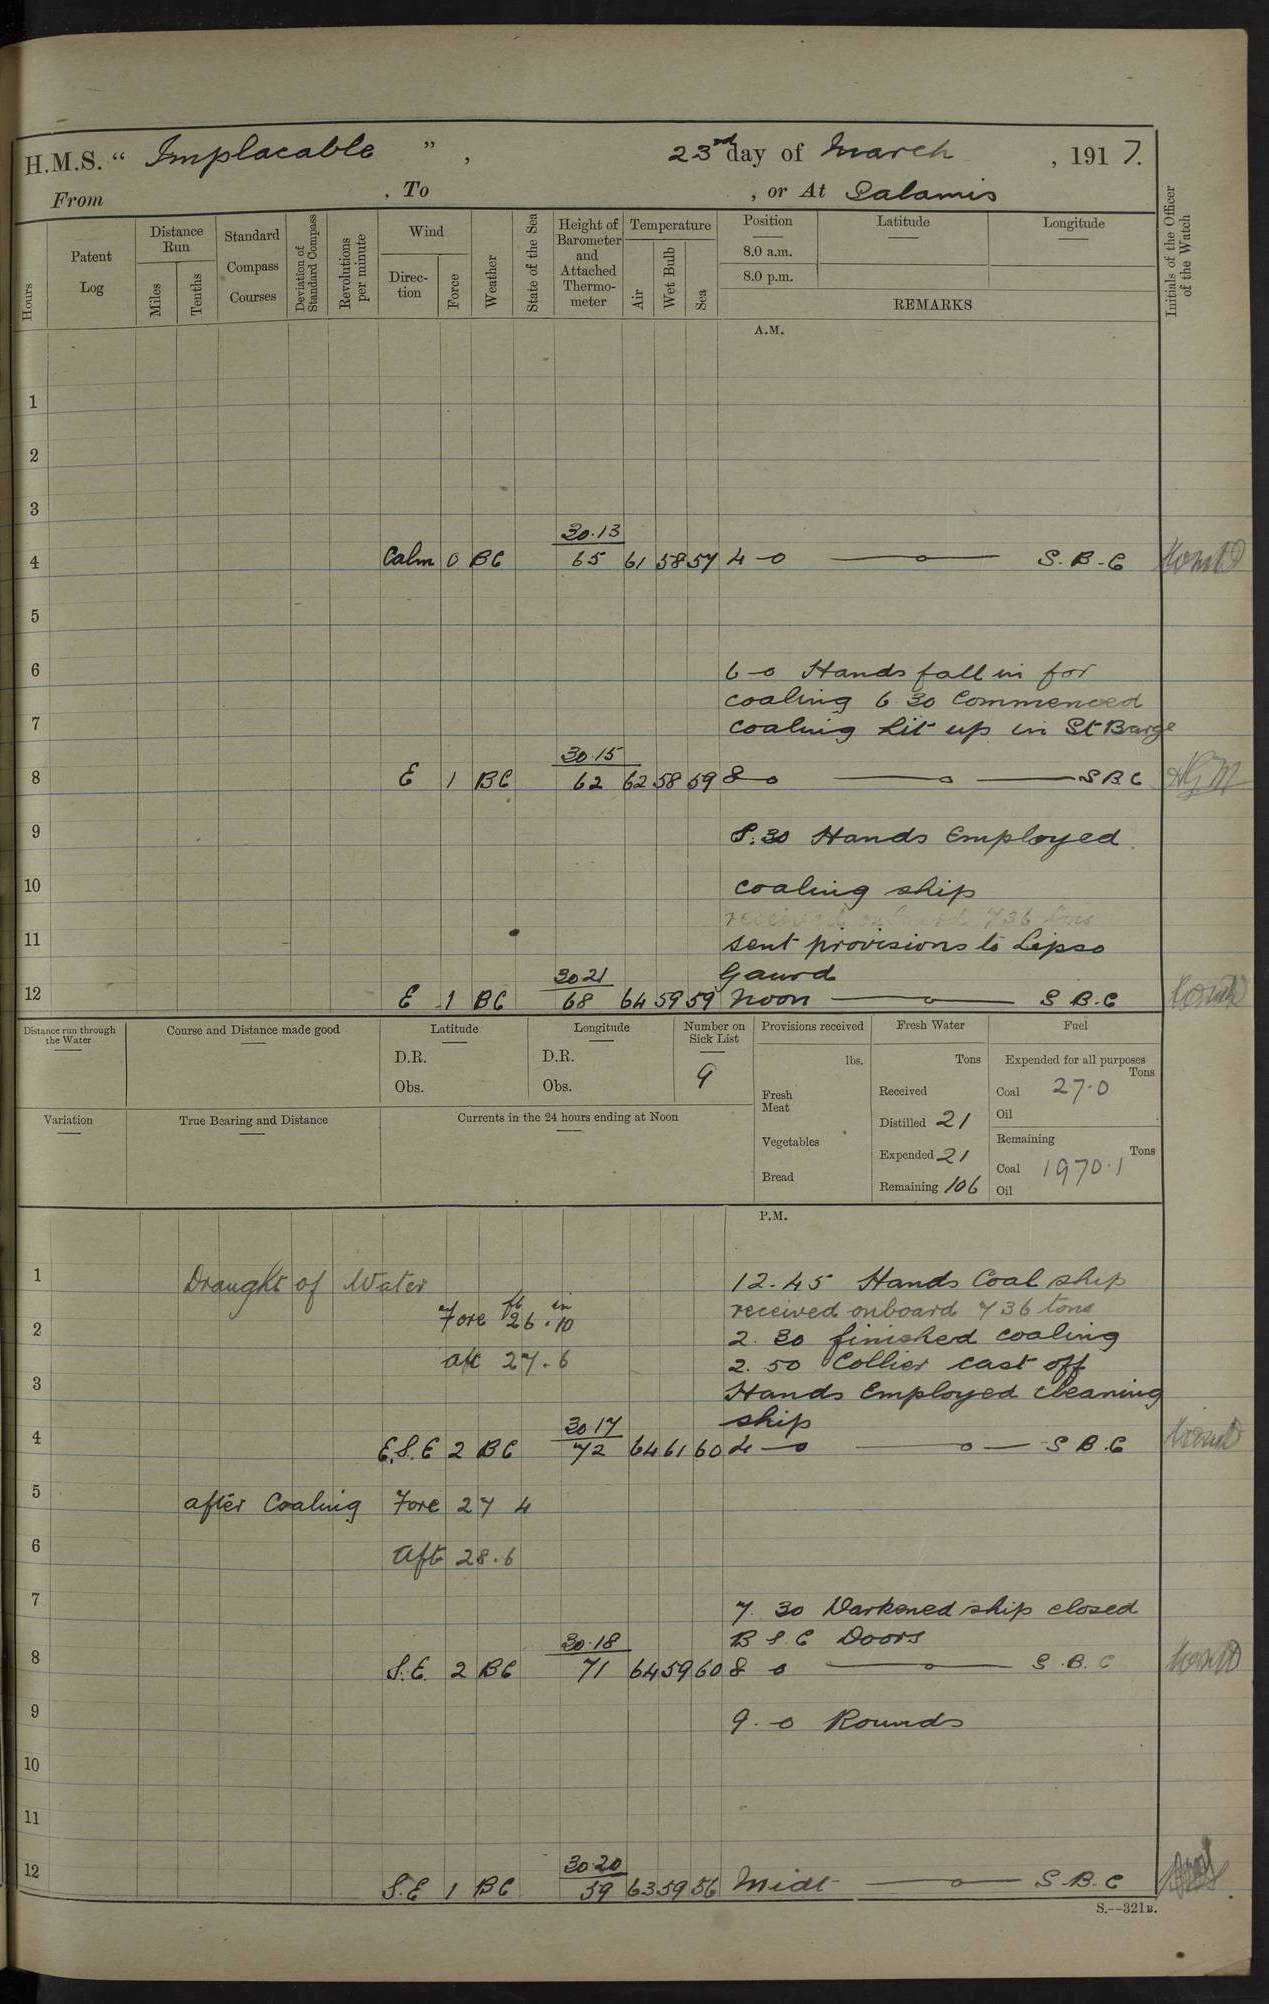 H.M.S. “ Implacable ” , 23rd day of March , 1917.
From , To , or At Salamis
Hours
Patent Log
Distance Run
Miles
Tenths
Standard Compass Courses
Deviation of Standard Compass
Revolutions per minute
Wind
Direction
Force
Weather
State of the Sea
Height of Barometer and Attached Thermometer
Temperature
Air
Wet Bulb
Sea
Position
8.0 a.m.
8.0 p.m.
Latitude
Longitude
REMARKS
Initials of the Officer of the Watch
A.M.
1
2
3
30.13
4 Calm 0 BC 65 61 58 57 4-0 S.B.C
5
6 6-0 Hands fall in for
coaling 6.30 Commenced
7 coaling Lit up in St Barge
30.15
8 E 1 BC 62 62 58 59 8-0 SBC
9 8.30 Hands Employed
10 coaling ship
received onboard 736 tons
11 sent provisions to Lipso
Gaurd
30 21
12 E 1 BC 68 64 59 59 Noon S B.C
Distance run through the Water
Course and Distance made good
Latitude
D.R.
Obs.
Longitude
D.R.
Obs.
Number on Sick List
9
Provisions received
lbs.
Fresh Meat
Vegetables
Bread
Fresh Water
Tons
Received
Distilled 21
Expended 21
Remaining 106
Fuel
Expended for all purposes
Tons
Coal 27.0
Oil
Remaining
Tons
Coal 1970.1
Oil
Variation
True Bearing and Distance
Currents in the 24 hours ending at Noon
P.M.
1 Draught of Water 12.45 Hands Coal ship
ft in
Fore 26.10 received onboard 736 tons
2 2.30 finished coaling
aft 27.6 2.50 Collier cast off
3 Hands Employed cleaning
ship
30.17
4 E.S.E 2 BC 72 64 61 60 4-0 S B.C
5 after Coaling Fore 27 4
6 Aft 28.6
7 7.30 Darkened ship closed
B S C Doors
30.18
8 S.E. 2 BC 71 64 59 60 8 0 S.B.C
9 9.0 Rounds
10
11
30.20
12 S.E 1 BC 59 63 59 56 Midt S.B.C
S.—321B.